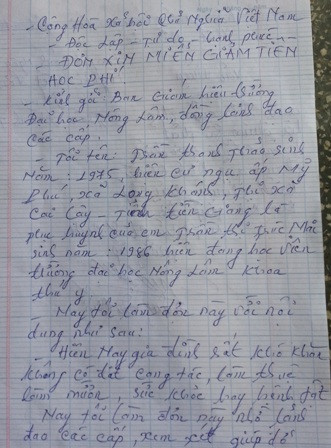 - Cộng Hòa Xã hội Chủ Nghĩa Việt Nam
- Độc Lập - Tự do - hanh phúc -
- ĐƠN XIN MIỄN GIẢM TIỀN
HỌC PHÍ
- Kính gởi: Ban Giám hiệu trưởng
Đại học Nông Lâm, đồng lảnh đạo
các cấp.
- Tôi tên: Trần thanh Thảo sinh
Năm: 1975, hiện cư ngụ ấp Mỹ
Phú, xả Long Khánh, Thị xả
Cai Lậy - Tỉnh tiền Giang là
phụ huynh của em Trần thị Trúc Mai
sinh năm: 1986 hiện đang học viên
trường đại học Nông Lâm khoa
thú y
- Nay tôi làm đơn này với nội
dung như sau:
- Hiện Nay gia đình rất khó khăn
không có đất công tác, làm thuê
làm mướn, sức khỏe hay bệnh tật
Nay tôi làm đơn này nhờ lảnh
đạo các cấp, xem xét giúp đở